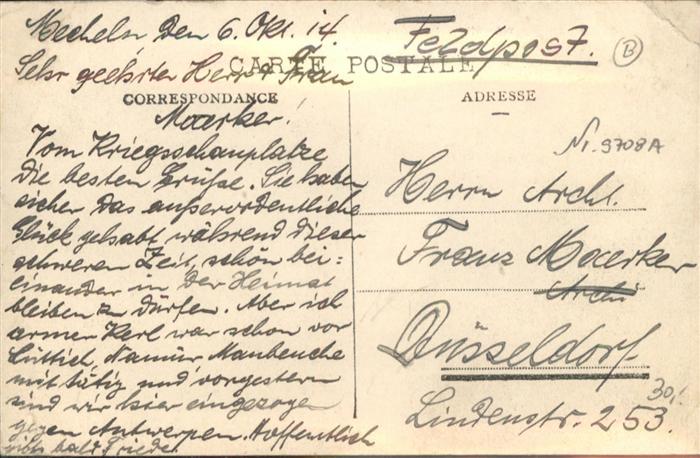 Mecheln den 6. Okt. 14.
Feldpost.
B
CARTE POSTALE
Sehr geehrter Herr u Frau
CORRESPONDANCE
ADRESSE
Maerker!
Nr. 9708A
Vom Kriegsschauplatze
die besten Grüße. Sie haben
sicher das außerordentliche
Glück gehabt während dieser
schweren Zeit, schön bei=
einander in der Heimat
bleiben zu dürfen. Aber ich
armer Kerl war schon vor
Lüttich, Namür Maubeuche
mit tätig und vorgestern
sind wir hier eingezogen
gegen Antwerpen. Hoffentlich
gibts bald Friede.
Herrn Archt.
Franz Maerker
Archi
Düsseldorf
30,-
Lindenstr. 253.